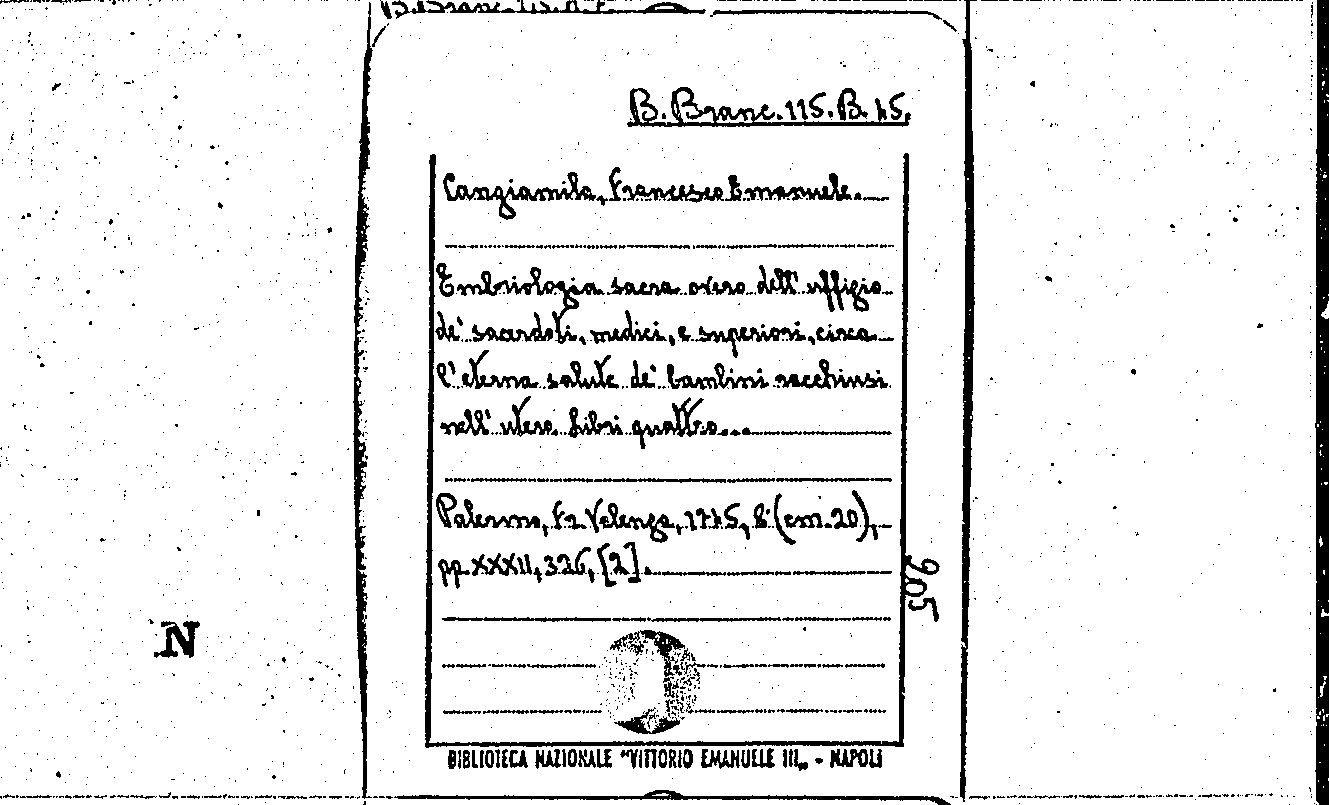 B. Branc. 115. B. 45.
Cangiamila, Francesco Emanuele.
Embriologia sacra overo dell' uffizio
de' sacerdoti, medici, e superiori, circa
l'eterna salute de' bambini racchiusi
nell' utero. Libri quattro...
Palermo, Fr. Valenza, 1745, 8° (cm. 20),
pp. XXXII, 326, [2].
205
N
BIBLIOTECA NAZIONALE "VITTORIO EMANUELE III„ - NAPOLI